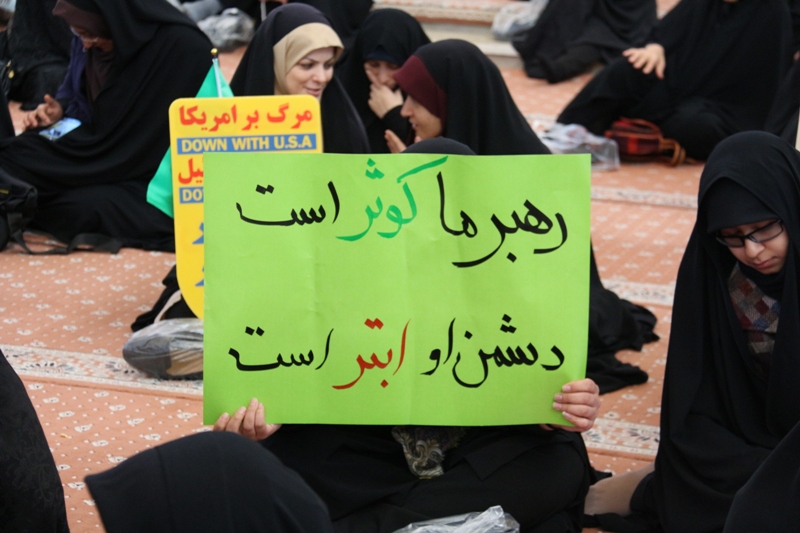 مرگ بر امریکا
DOWN WITH U.S.A
یل
DO
رهبر ما کوثر است
دشمن او ابتر است